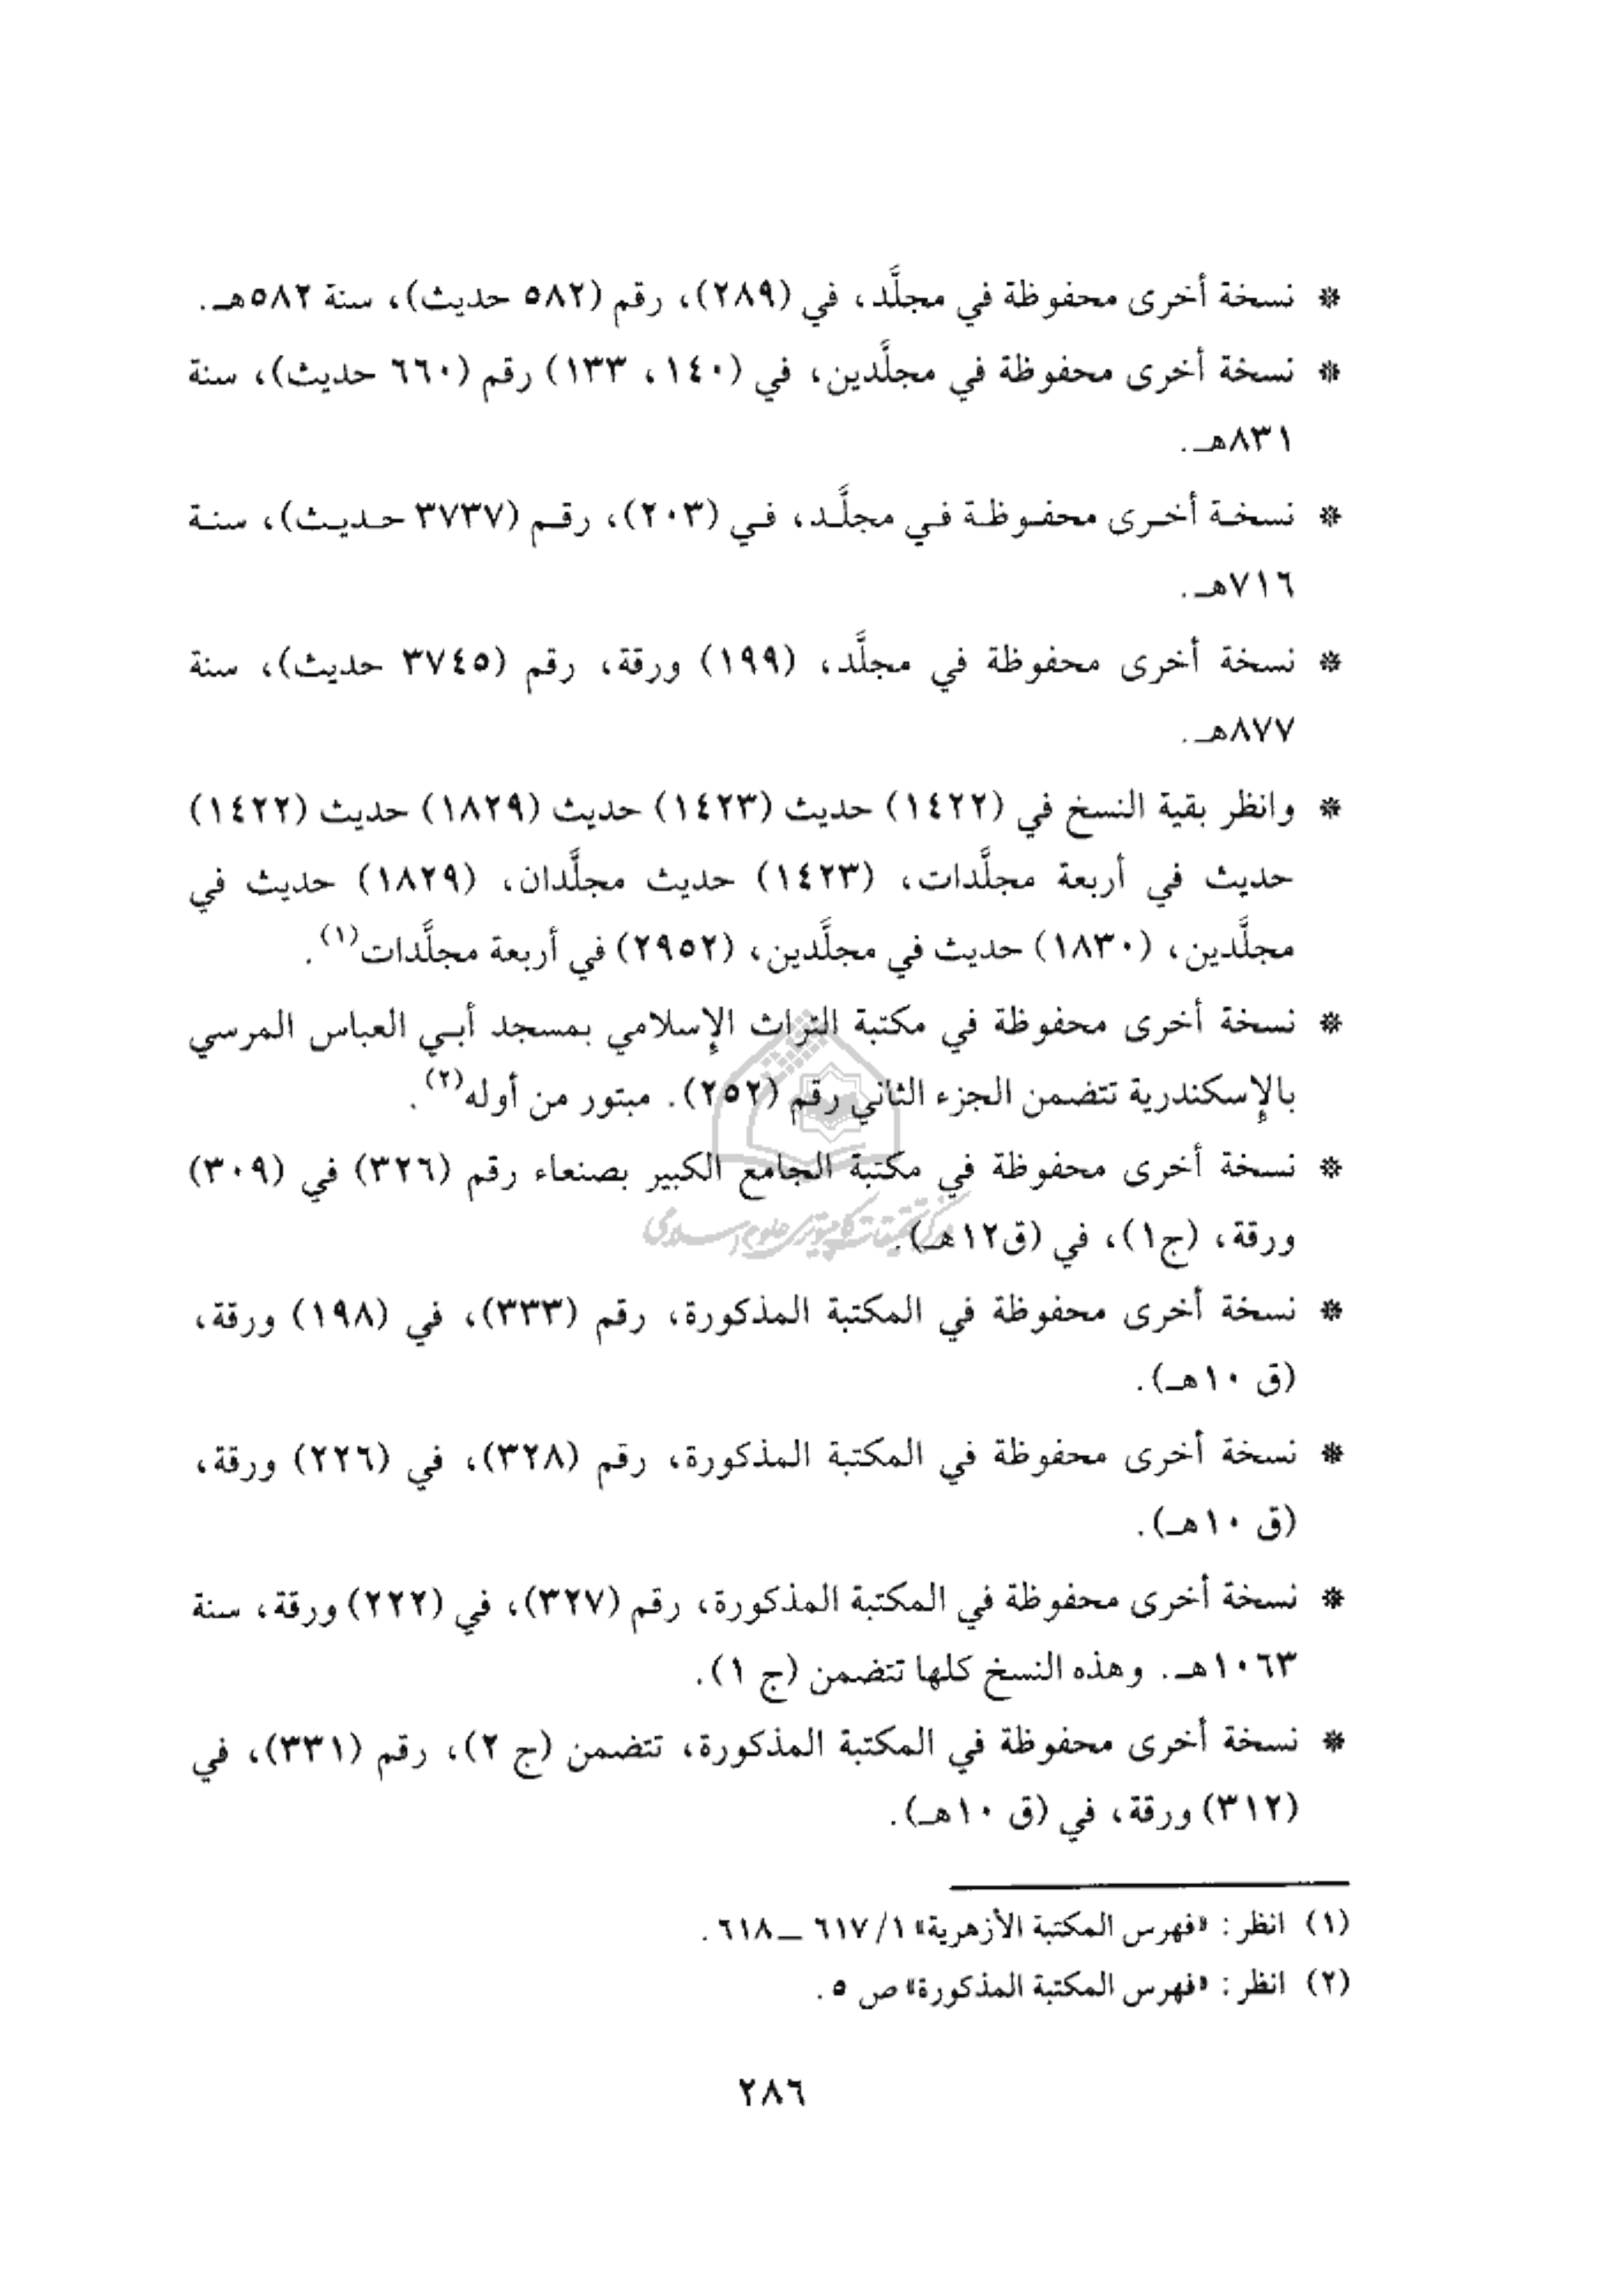 * نسخة أخرى محفوظة في مجلَّد، في (٢٨٩)، رقم (٥٨٢ حديث)، سنة ٥٨٢هـ.
* نسخة أخرى محفوظة في مجلَّدين، في (١٤٠، ١٣٣) رقم (٦٦٠ حديث)، سنة
٨٣١هـ.
* نسخة أخرى محفوظة في مجلَّد، في (٢٠٣)، رقم (٣٧٣٧ حديث)، سنة
٧١٦هـ.
* نسخة أخرى محفوظة في مجلَّد، (١٩٩) ورقة، رقم (٣٧٤٥ حديث)، سنة
٨٧٧هـ.
* وانظر بقية النسخ في (١٤٢٢) حديث (١٤٢٣) حديث (١٨٢٩) حديث (١٤٢٢)
حديث في أربعة مجلَّدات، (١٤٢٣) حديث مجلَّدان، (١٨٢٩) حديث في
مجلَّدين، (١٨٣٠) حديث في مجلَّدين، (٢٩٥٢) في أربعة مجلَّدات(١).
* نسخة أخرى محفوظة في مكتبة التراث الإسلامي بمسجد أبي العباس المرسي
بالإسكندرية تتضمن الجزء الثاني رقم (٢٥٢). مبتور من أوله(٢).
* نسخة أخرى محفوظة في مكتبة الجامع الكبير بصنعاء رقم (٣٢٦) في (٣٠٩)
ورقة، (ج١)، في (ق١٢هـ).
مركز تحقيقات كامپيوتری علوم اسلامی
* نسخة أخرى محفوظة في المكتبة المذكورة، رقم (٣٣٣)، في (١٩٨) ورقة،
(ق ١٠هـ).
* نسخة أخرى محفوظة في المكتبة المذكورة، رقم (٣٢٨)، في (٢٢٦) ورقة،
(ق ١٠هـ).
* نسخة أخرى محفوظة في المكتبة المذكورة، رقم (٣٢٧)، في (٢٢٢) ورقة، سنة
١٠٦٣هـ. وهذه النسخ كلها تتضمن (ج ١).
* نسخة أخرى محفوظة في المكتبة المذكورة، تتضمن (ج ٢)، رقم (٣٣١)، في
(٣١٢) ورقة، في (ق ١٠هـ).
(١) انظر: «فهرس المكتبة الأزهرية» ١/ ٦١٧ ــ ٦١٨.
(٢) انظر: «فهرس المكتبة المذكورة» ص ٥.
٢٨٦